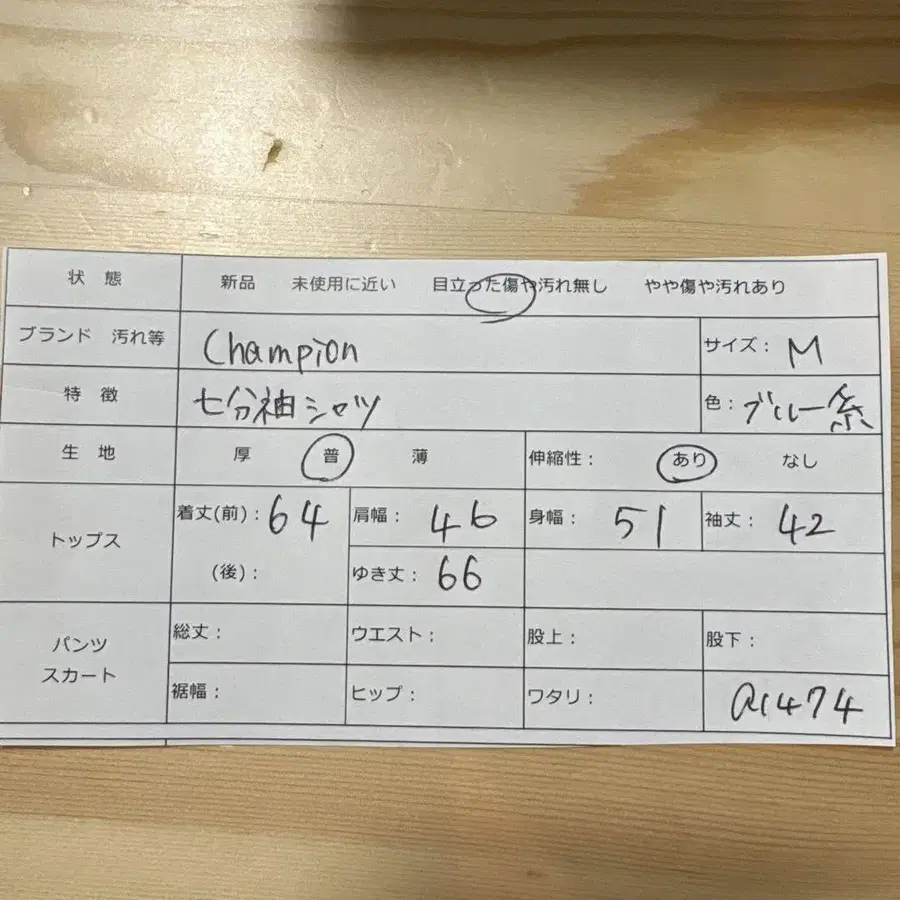 状 態 新品 未使用に近い 目立った傷や汚れ無し やや傷や汚れあり
ブランド 汚れ等 Champion サイズ: M
特 徴 七分袖シャツ 色: ブルー系
生 地 厚 普 薄 伸縮性: あり なし
トップス 着丈(前): 64 肩幅: 46 身幅: 51 袖丈: 42
(後): ゆき丈: 66
パンツ スカート 総丈: ウエスト: 股上: 股下:
裾幅: ヒップ: ワタリ: a1474